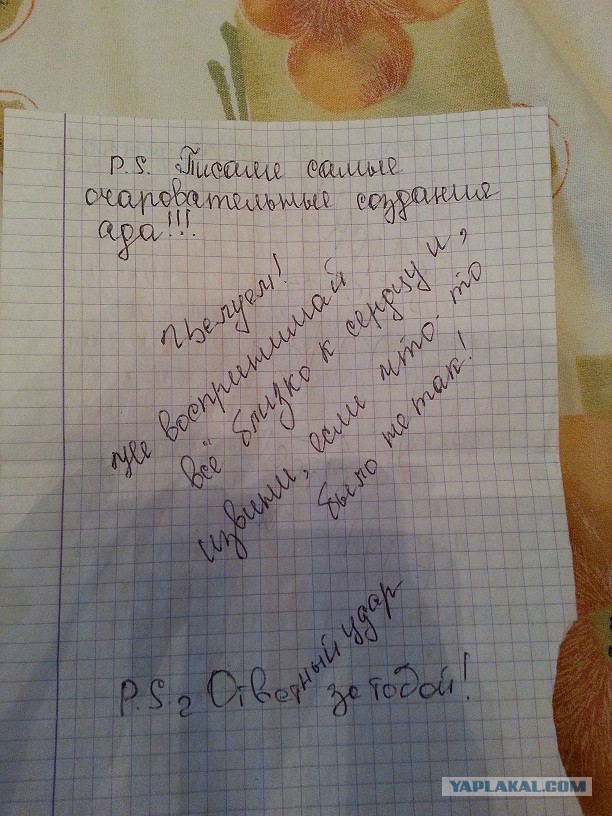 P.S. Писали самые
очаровательные создания
ада!!!
Целуем!
не воспринимай
всё близко к сердцу и,
извини, если что-то
было не так!
P.S.2 Ответный удар
за тобой!
YAPLAKAL.COM